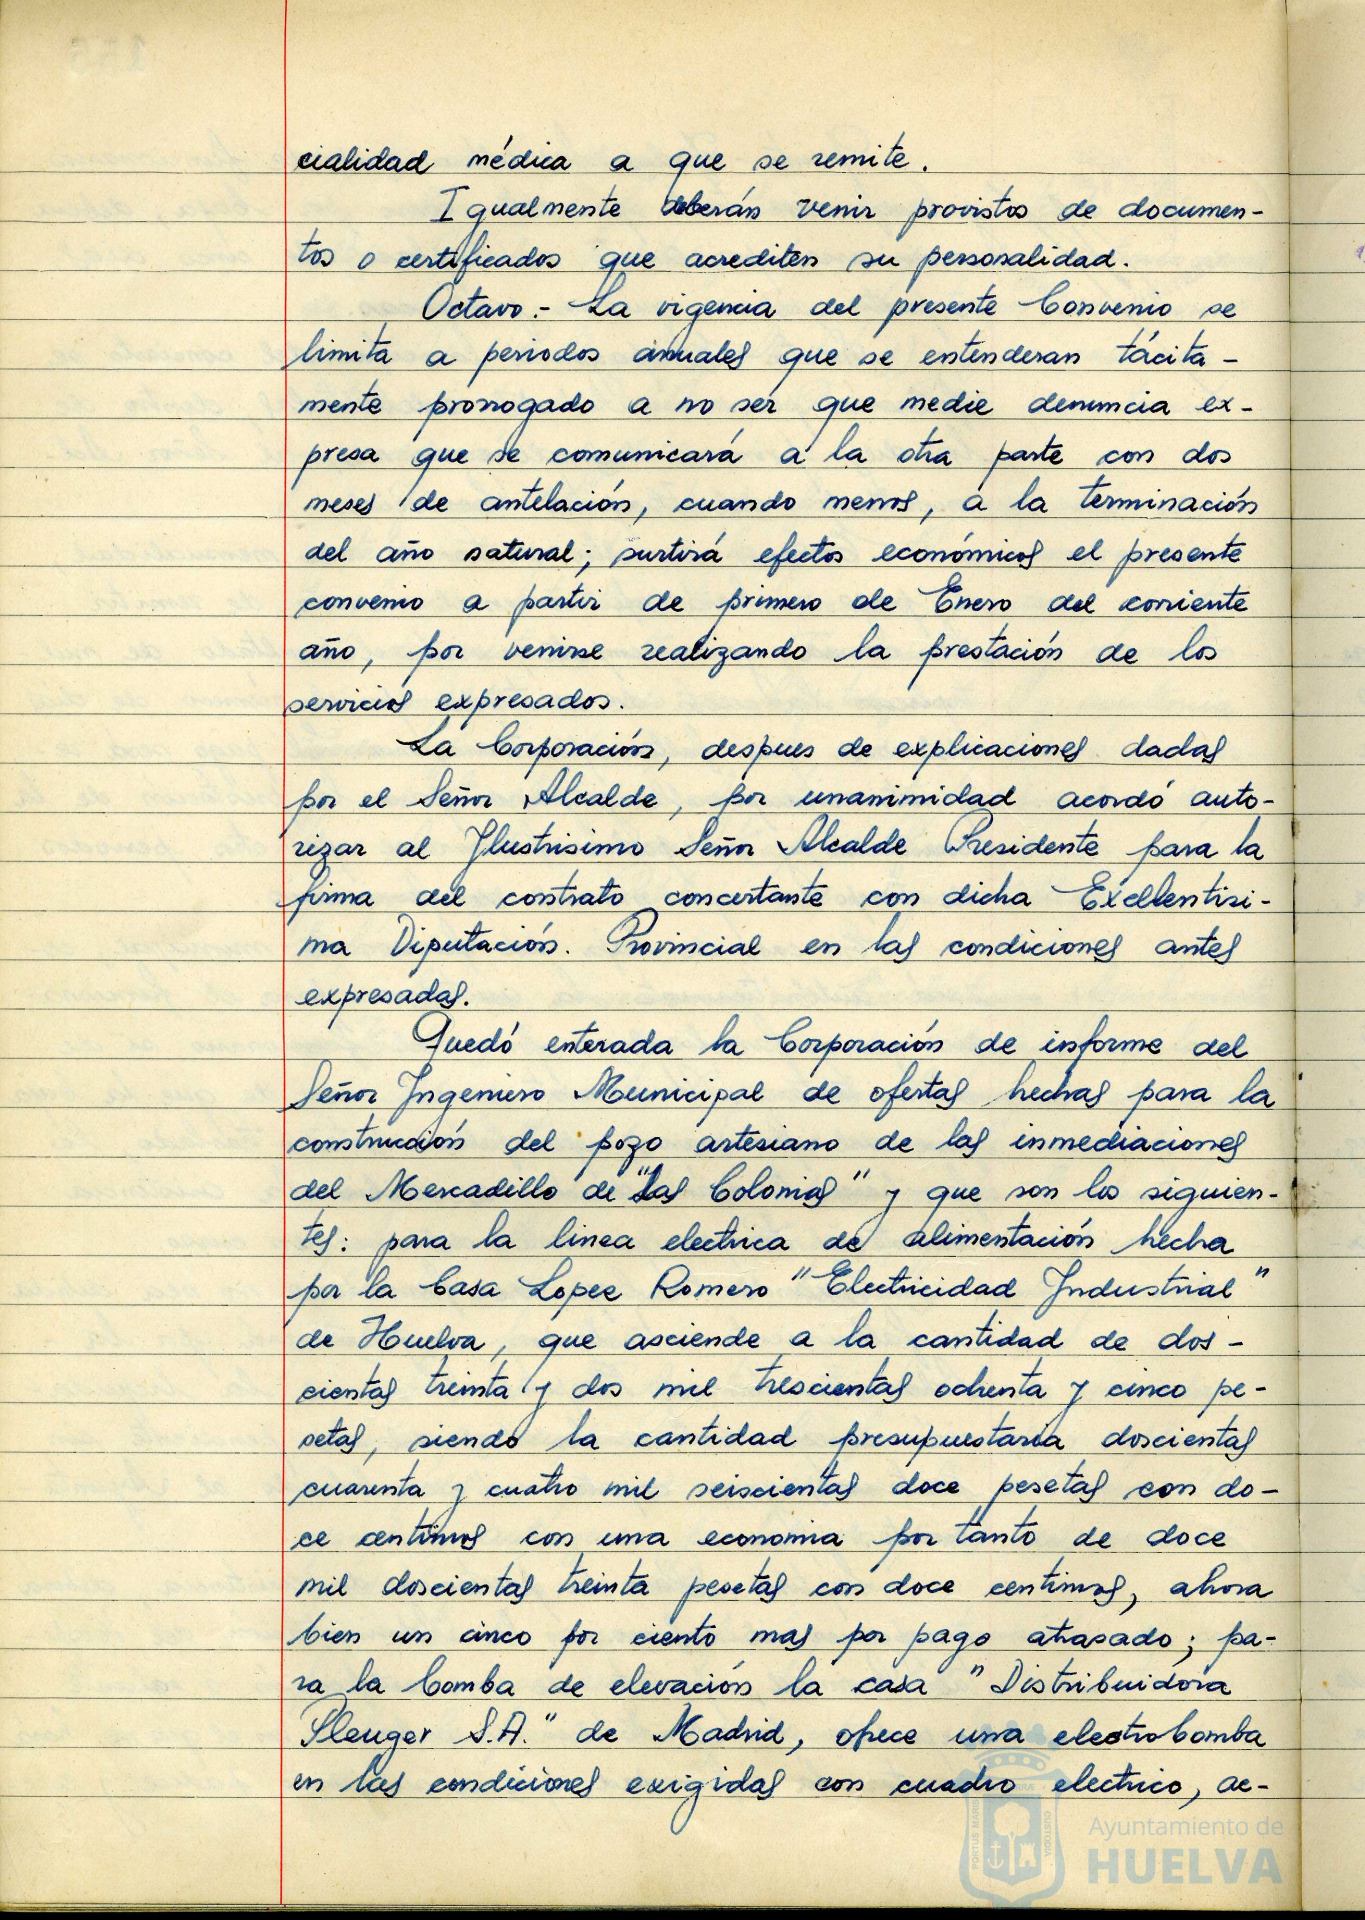 cialidad médica a que se remite.
Igualmente deberán venir provistos de documen-
tos o certificados que acrediten su personalidad.
Octavo.- La vigencia del presente Convenio se
limita a periodos anuales que se entenderan tácita-
mente prorrogado a no ser que medie denuncia ex-
presa que se comunicará a la otra parte con dos
meses de antelación, cuando menos, a la terminación
del año natural; surtirá efectos económicos el presente
convenio a partir de primero de Enero del corriente
año, por venirse realizando la prestación de los
servicios expresados.
La Corporación, despues de explicaciones dadas
por el Señor Alcalde, por unanimidad acordó auto-
rizar al Ilustrisimo Señor Alcalde Presidente para la
firma del contrato concertante con dicha Excelentisi-
ma Diputación. Provincial en las condiciones antes
expresadas.
Quedó enterada la Corporación de informe del
Señor Ingeniero Municipal de ofertas hechas para la
construcción del pozo artesiano de las inmediaciones
del Mercadillo de "Las Colonias" y que son los siguien-
tes: para la linea electrica de alimentación hecha
por la Casa Lopez Romero "Electricidad Industrial"
de Huelva, que asciende a la cantidad de dos-
cientas treinta y dos mil trescientas ochenta y cinco pe-
setas, siendo la cantidad presupuestaria doscientas
cuarenta y cuatro mil seiscientas doce pesetas con do-
ce centimos con una economia por tanto de doce
mil doscientas treinta pesetas con doce centimos, ahora
bien un cinco por ciento mas por pago atrasado; pa-
ra la bomba de elevación la casa "Distribuidora
Pleuger S.A." de Madrid, ofrece una electrobomba
en las condiciones exigidas con cuadro electrico, ac-
Ayuntamiento de
HUELVA